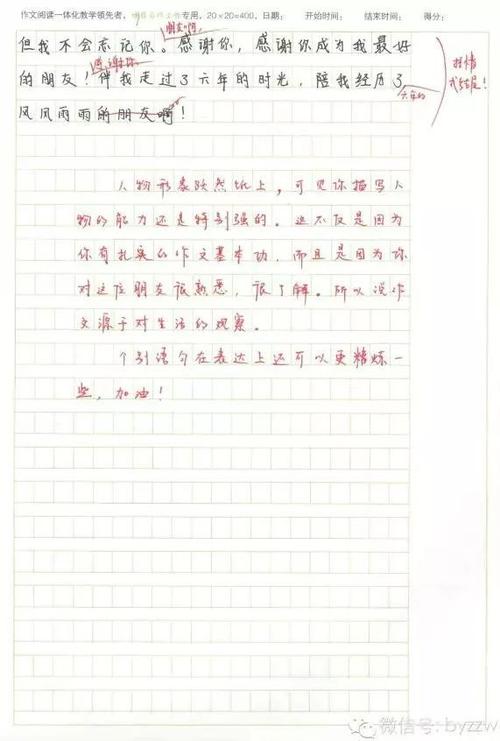 作文阅读一体化教学领先者, 专用, 20×20=400, 日期: 开始时间: 结束时间: 得分:
朋友啊,
但我不会忘记你。感谢你, 感谢你成为我最好
感谢你
的朋友! 伴我走过了六年的时光, 陪我经历了
六年的
风风雨雨的朋友啊!
抒情
式结尾!
人物形象跃然纸上, 可见你描写人
物的能力还是特别强的。这不仅是因为
你有扎实的作文基本功, 而且是因为你
对这位朋友很熟悉, 很了解。所以说作
文源于对生活的观察。
个别语句在表达上还可以更精炼一
些, 加油!
微信号: byzzw